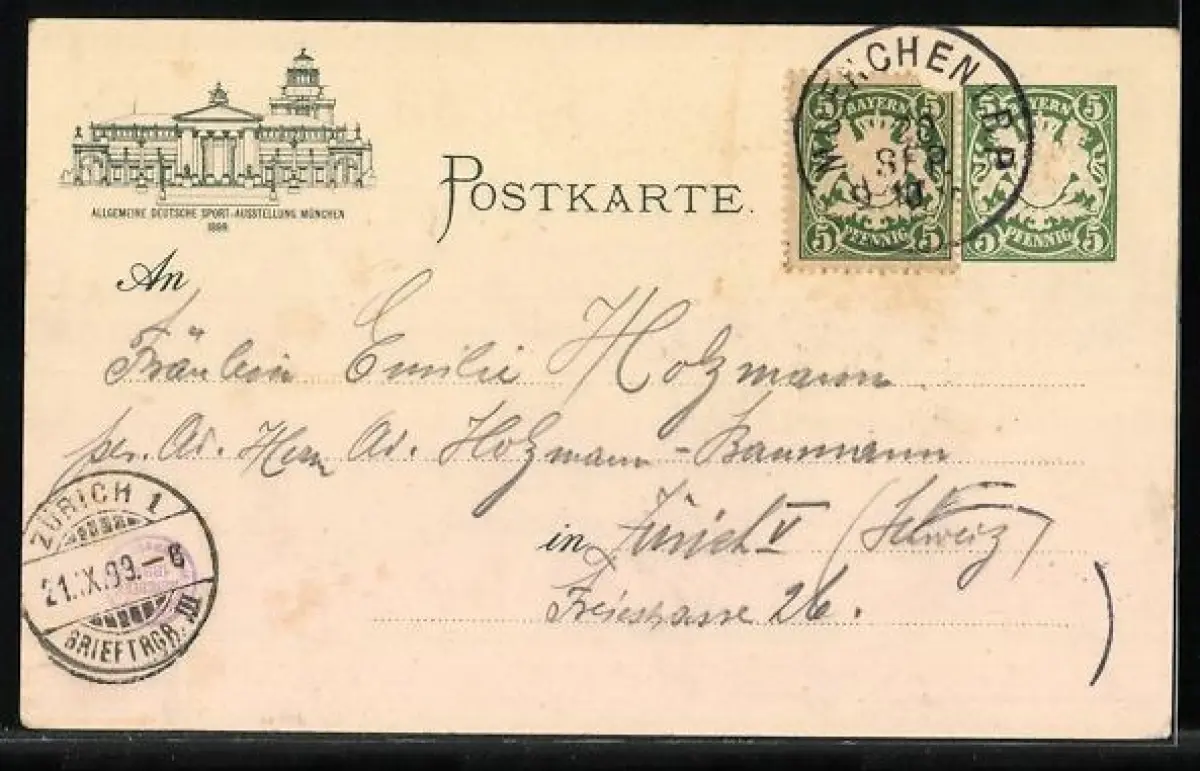 ALLGEMEINE DEUTSCHE SPORT-AUSSTELLUNG MÜNCHEN
1899.
POSTKARTE.
BAYERN
5 5
PFENNIG
5 5
BAYERN
5 5
PFENNIG
5 5
MUENCHEN
20
SEP
An
Fräulein Emilie Holzmann
per. Ad. Herrn Ad. Holzmann-Baumann
in Zürich V (Schweiz)
Freiestrasse 26.
ZÜRICH 1
21.IX.99.-6
BRIEFTRGR. III